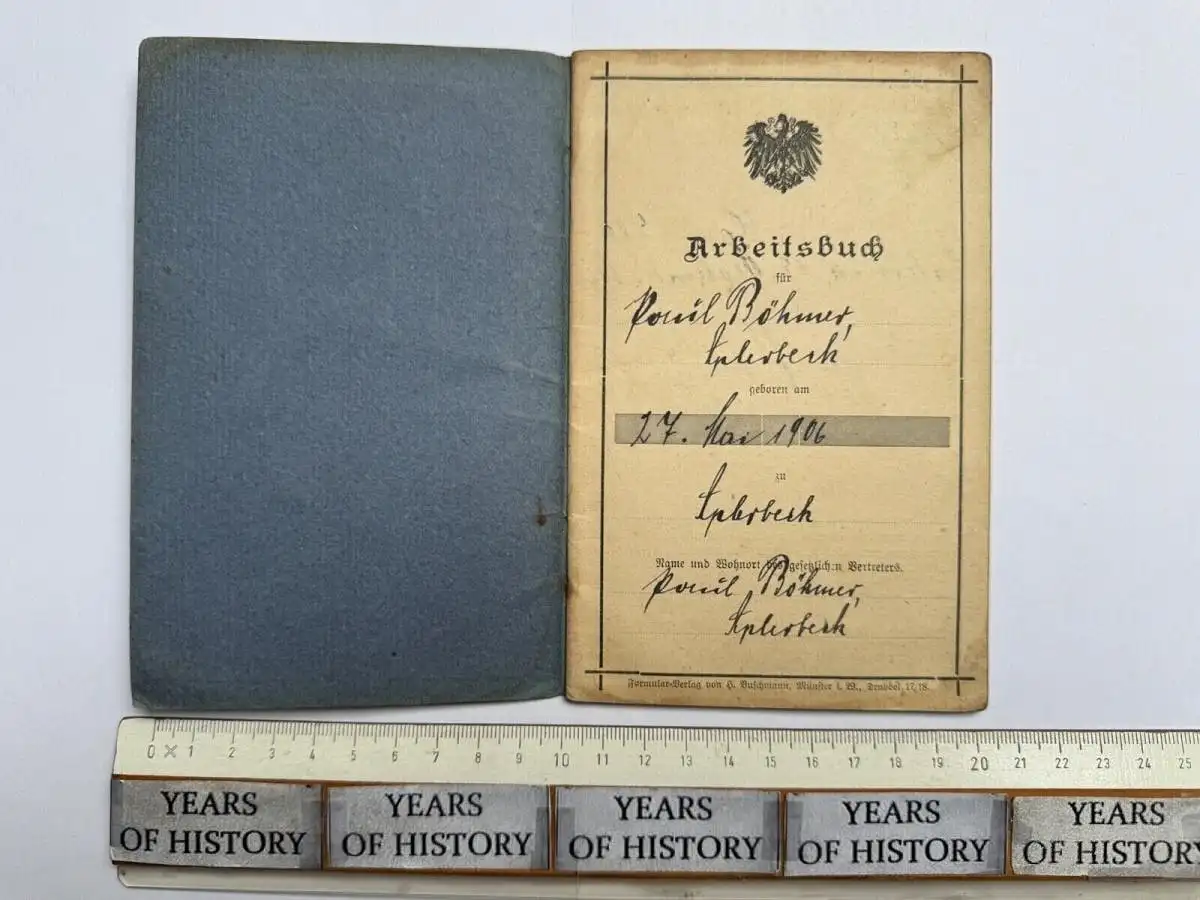 Arbeitsbuch
für
Paul Böhmer,
Aplerbeck
geboren am
27. Mai 1906
zu
Aplerbeck
Name und Wohnort des gesetzlichen Vertreters.
Paul Böhmer,
Aplerbeck
Formular-Verlag von H. Buschmann, Münster i. W., 17/18.
0 1 2 3 4 5 6 7 8 9 10 11 12 13 14 15 16 17 18 19 20 21 22 23 24 25
YEARS OF HISTORY YEARS OF HISTORY YEARS OF HISTORY YEARS OF HISTORY YEARS OF HISTORY